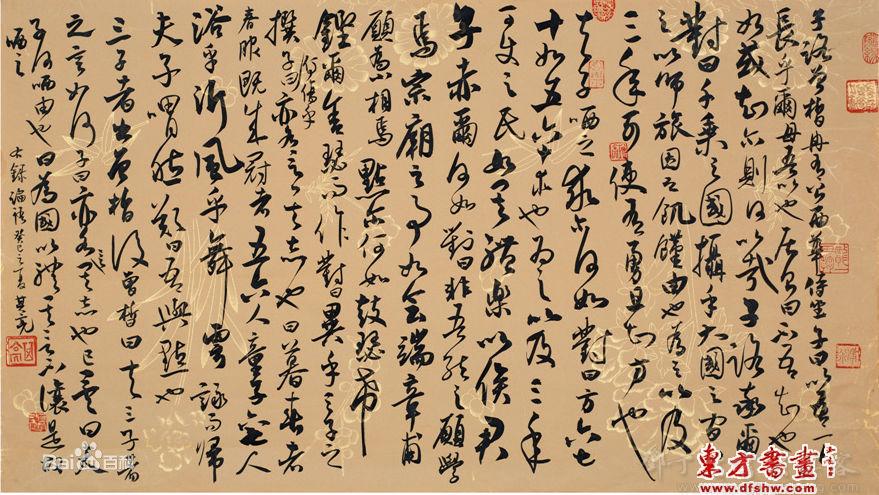 子路曾皙冉有公西華侍坐子曰以吾一日
長乎爾毋吾以也居則曰不吾知也
如或知爾則何以哉子路率爾
對曰千乘之國攝乎大國之間
之以師旅因之飢饉由也為之比及
三年可使有勇且知方也
夫子哂之求爾何如對曰方六七
十如五六十求也為之比及三年
可使之民如其禮樂以俟君
子赤爾何如對曰非吾能之願學
焉宗廟之事如會端章甫
願為小相焉點爾何如鼓瑟希
鏗爾舍瑟而作對曰異乎三子之
撰子曰何傷乎亦各言其志也曰暮春者
春服既成冠者五六人童子六七人
浴乎沂風乎舞雩詠而歸
夫子喟然歎曰吾與點也
三子者出曾皙後曾皙曰夫三子者
之言如何子曰亦各言其志也已矣曰夫
子何哂由也曰為國以禮其言不讓是故
哂之
論語癸巳之夏
Bai百科
東方書畫
www.dfshw.com